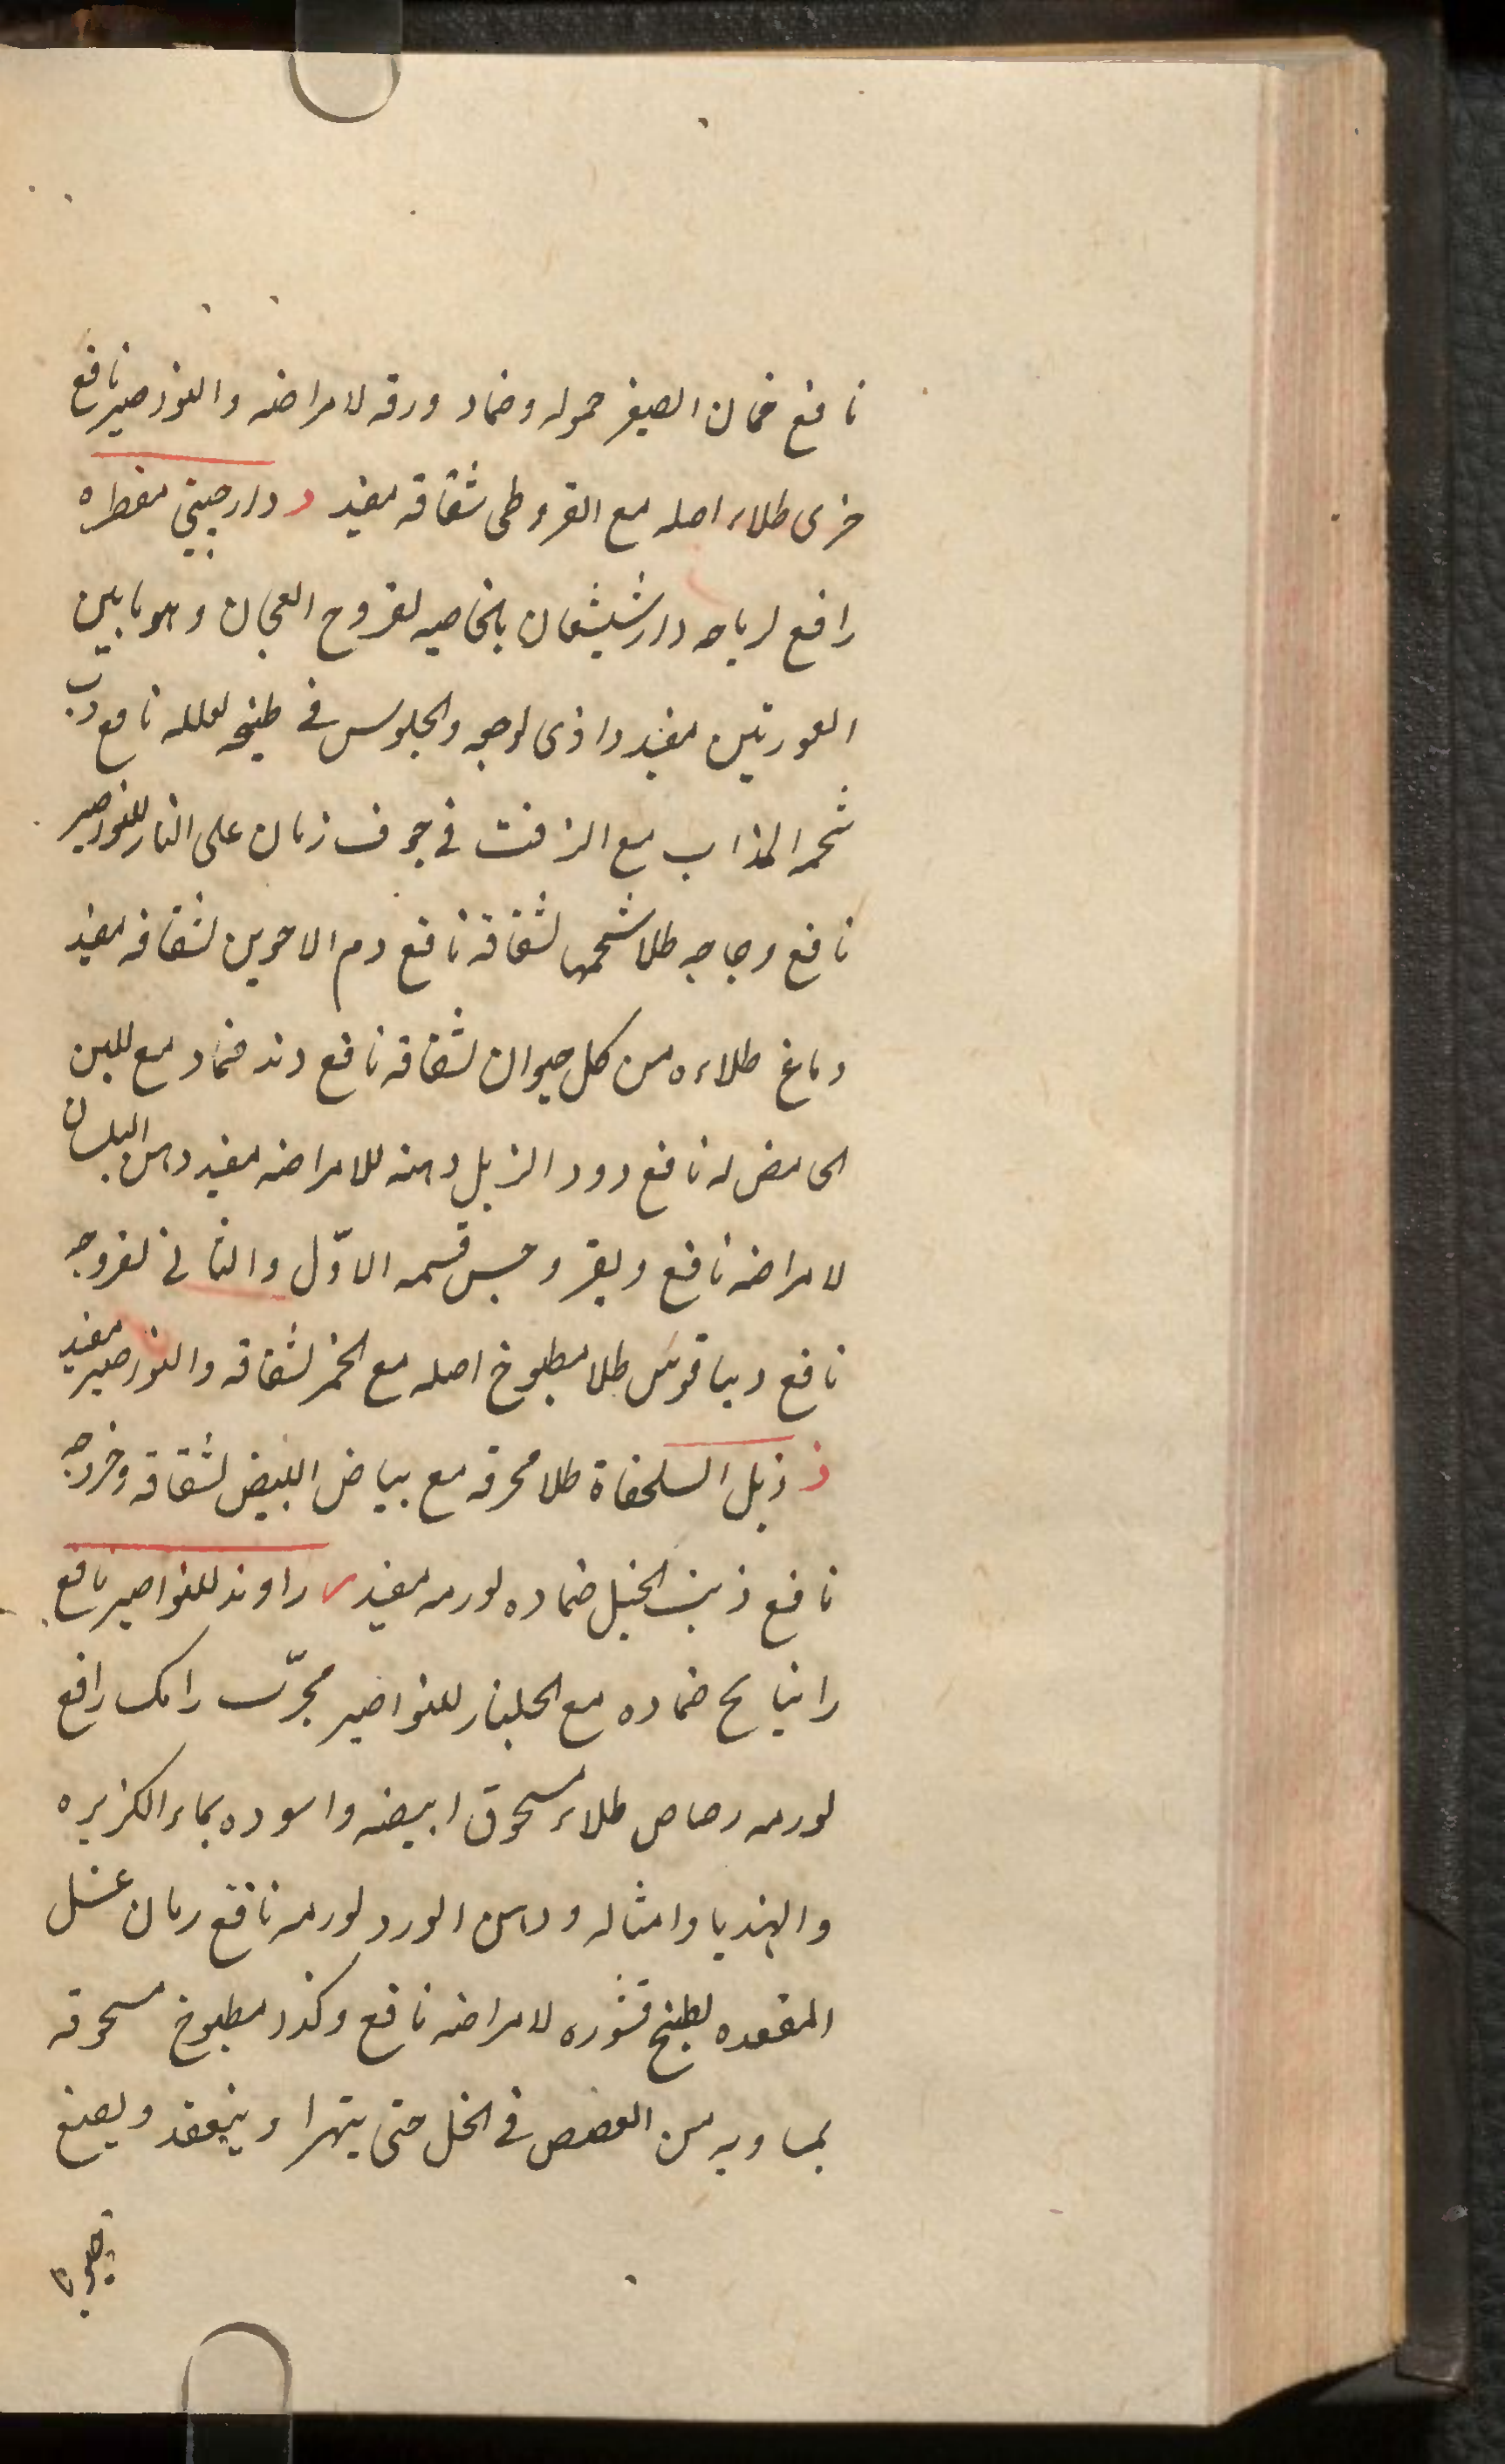 نافع خمان الصغير حموله وضماد ورقه لامراضه والنوزصير نافع
خزى طلاء اصله مع القروطى شقاقه مفيد د دارصينى مقطره
رافع لرياحه دارشيشغان بالخاصيه لقروح العجان وهو ما بين
العورتين مفيد داذى لوجعه والجلوس فى طبيخه لعلله نافع دب
شحمه المذاب مع الزفت فى جوف رمان على النار للنوزصير
نافع دجاجه طلا شحمها لشقاقه نافع دم الاخوين لشقاقه مفيد
دماغ طلاءه من كل حيوان لشقاقه نافع دند ضماد مع اللبن
الحامض له نافع دود الزبل دهنه للامراضه مفيد دهن البلسان
لامراضه نافع ديفروجس قسمه الاوّل والثانى لقروحه
نافع ديباقوس طلا مطبوخ اصله مع الخمر لشقاقه والنوزصير مفيد
ذ ذبل السلحفاة طلا محرقه مع بياض البيض لشقاقه وخروجه
نافع ذنب الخيل ضماده لورمه مفيد ر راوند للنواصير نافع
راتيانج ضماده مع الجلنار للنواصير مجرّب رامك رافع
لورمه رصاص طلاء مسحوق ابيضه واسوده بماء الكزبره
والهندبا وامثاله ودهن الورد لورمه نافع رمان غسل
المقعده بطبيخ قشوره لامراضه نافع وكذر مطبوخ مسحوقه
بمساويه من العفص فى الخل حتى يتهرا وينعقد ويصنع